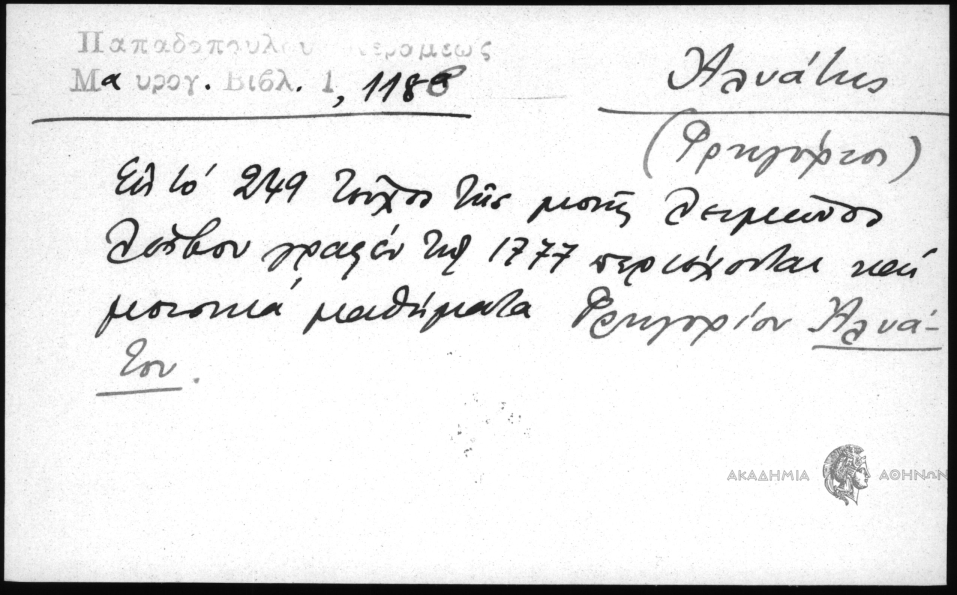 Παπαδοπούλου Κεραμέως
Μαυρογ. Βιβλ. 1, 118β
Ἀλυάτης
(Γρηγόριος)
Εἰς τό 249 τεῦχος τῆς μονῆς Λειμῶνος
Λέσβου γραφέν τῷ 1777 περιέχονται καί
μουσικά μαθήματα Γρηγορίου Ἀλυά-
του.
ΑΚΑΔΗΜΙΑ ΑΘΗΝΩΝ